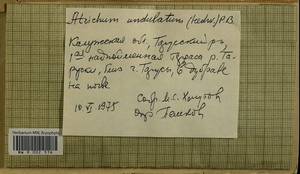 Atrichum undulatum (Hedw.) P.B.
Калужская обл., Тарусский р-н,
1ая надпойменная терраса р. Та-
руски, близ г. Тарусы, в дубраве
на почве
10 VI 1975
Собр.
Опр.
Herbarium MW, Bryophyta